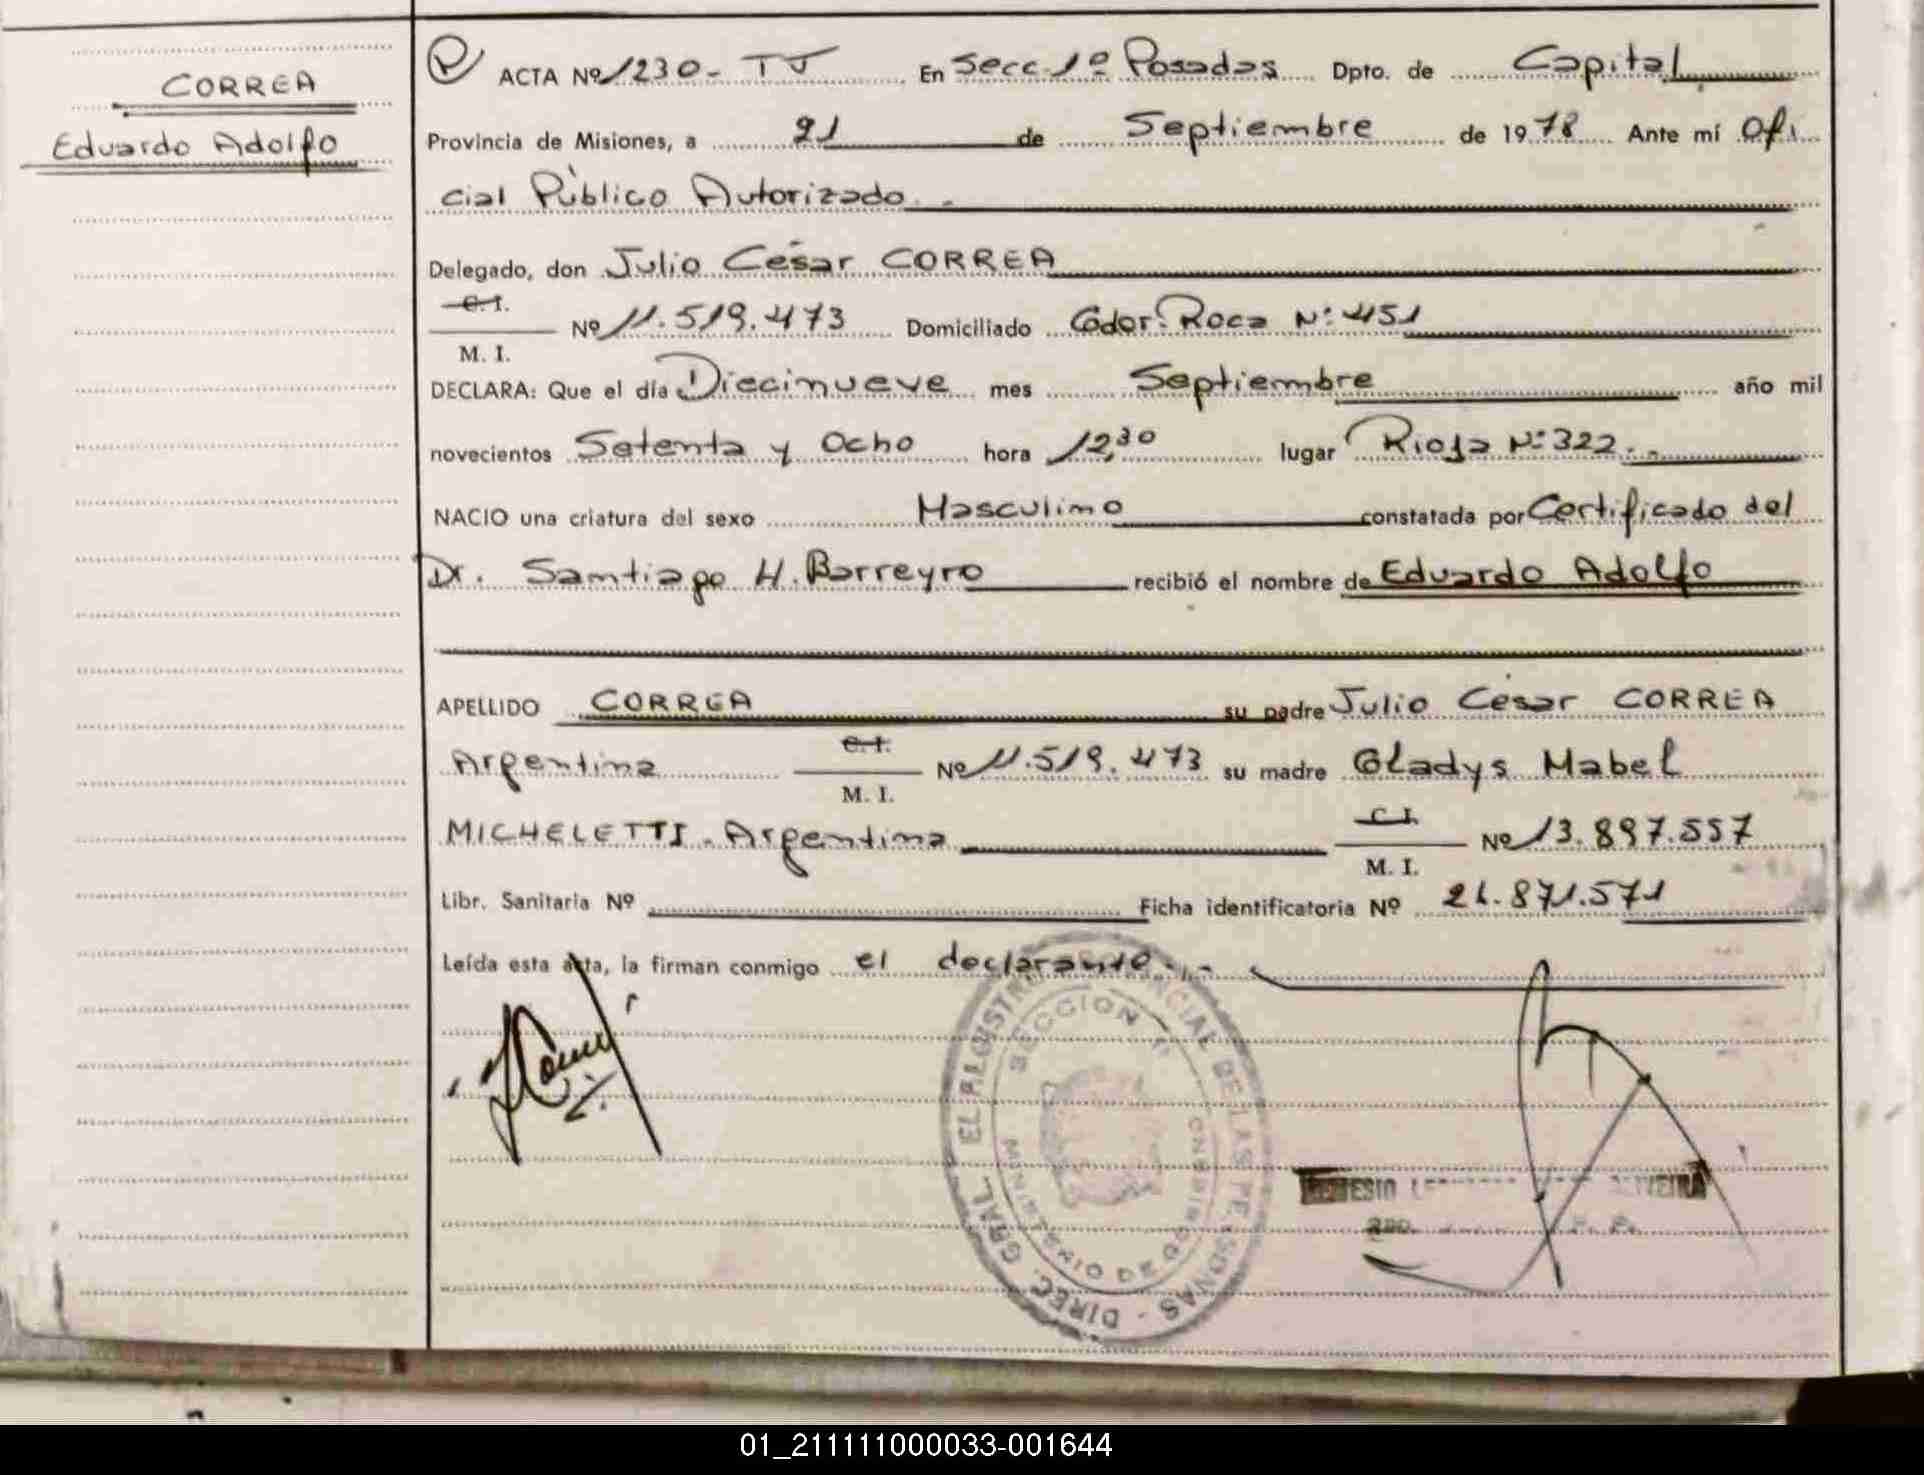 CORREA
Eduardo Adolfo
ACTA Nº 1230- TJ En Secc. 1º Posadas Dpto. de Capital
Provincia de Misiones, a 21 de Septiembre de 1978 Ante mí Ofi
cial Público Autorizado.-
Delegado, don Julio César CORREA
C.I.
M. I.
Nº 11.519.473 Domiciliado Gdor. Roca Nº 451
DECLARA: Que el día Diecinueve mes Septiembre año mil
novecientos Setenta y Ocho hora 12,30 lugar Rioja Nº 322.-
NACIO una criatura del sexo Masculino constatada por Certificado del
Dr. Santiago H. Barreyro recibió el nombre de Eduardo Adolfo
APELLIDO CORREA su padre Julio César CORREA
Argentina C.I. M. I. Nº 11.519.473 su madre Gladys Mabel
MICHELETTI. Argentina C.I. M. I. Nº 13.897.557
Libr. Sanitaria Nº Ficha identificatoria Nº 26.871.571
Leída esta acta, la firman conmigo el declarante.-
DIREC. GRAL. PROVINCIAL DE LAS PERSONAS
SECCION 1ª
MINISTERIO DE GOBIERNO
01_211111000033-001644